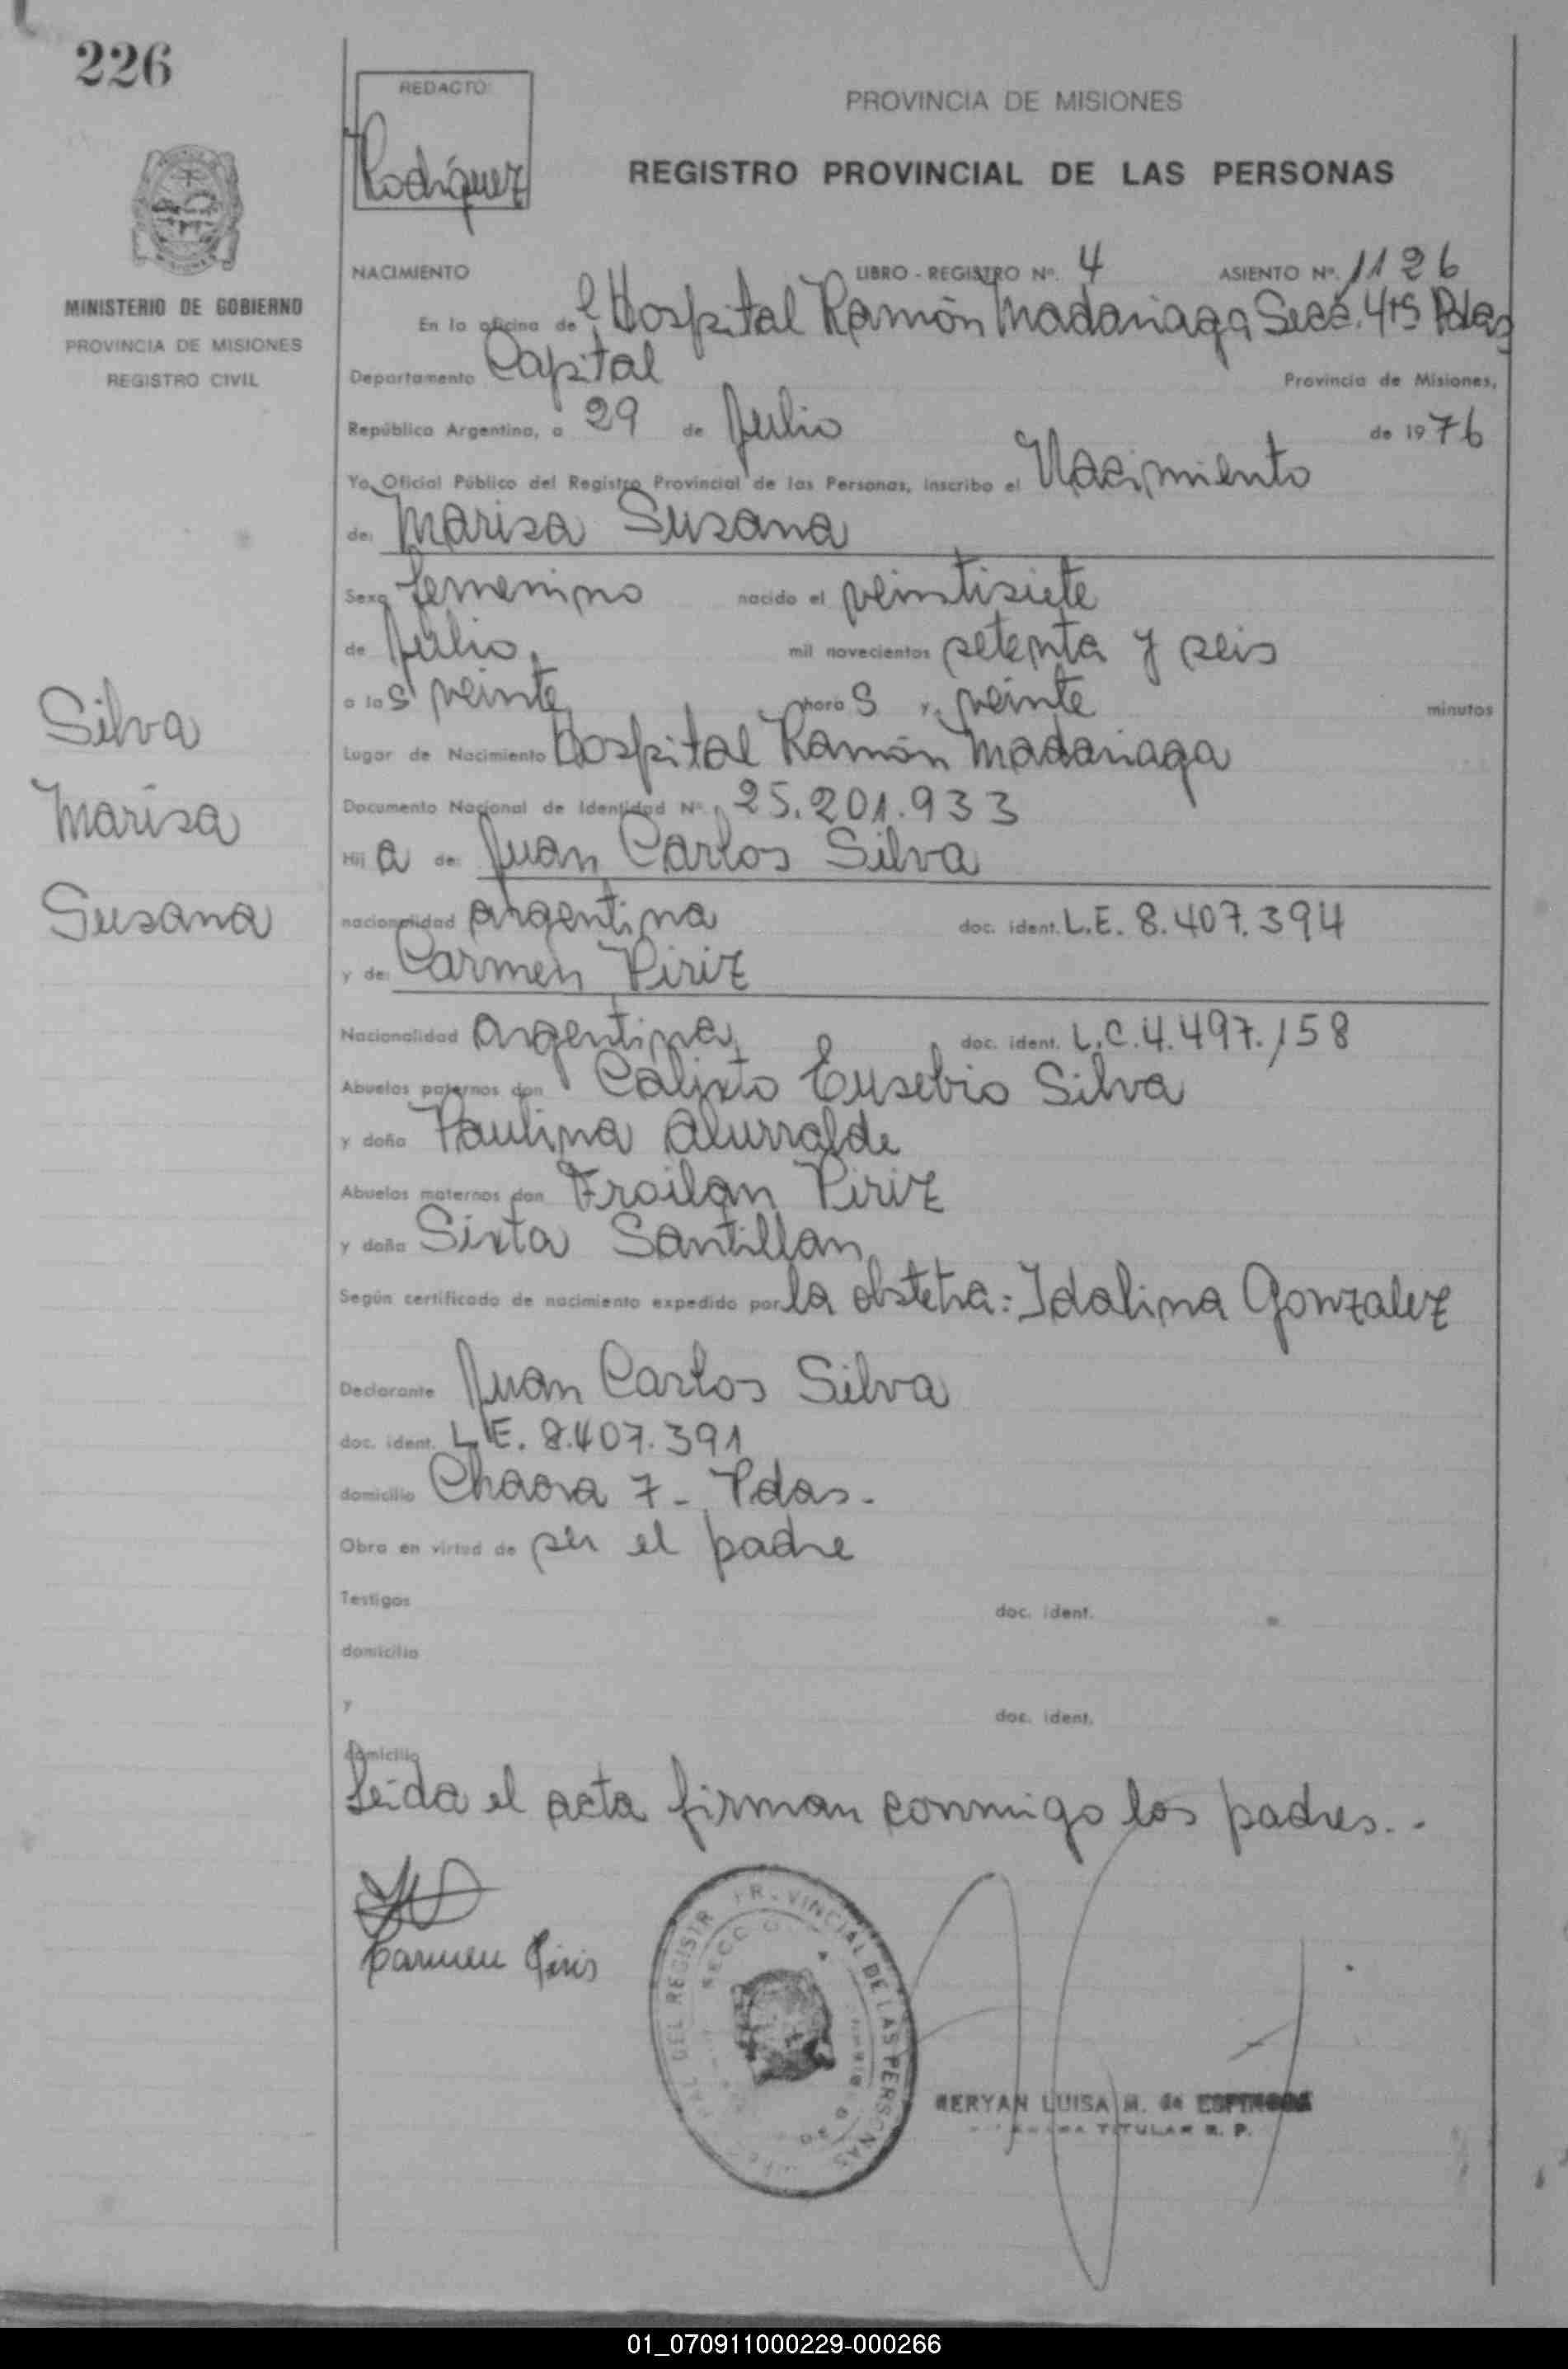 226
REDACTO
Rodríguez
PROVINCIA DE MISIONES
REGISTRO PROVINCIAL DE LAS PERSONAS
MINISTERIO DE GOBIERNO
PROVINCIA DE MISIONES
REGISTRO CIVIL
NACIMIENTO LIBRO - REGISTRO Nº. 4 ASIENTO Nº. 1126
En la oficina del Hospital Ramón Madariaga, Secc. 4ta Pdas
Departamento Capital Provincia de Misiones,
República Argentina, a 29 de Julio de 1976
Yo, Oficial Público del Registro Provincial de las Personas, inscribo el Nacimiento
de: Marisa Susana
Sexo femenino nacido el veintisiete
de Julio, mil novecientos setenta y seis
a las veinte horas y veinte minutos
Silva
Marisa
Susana
Lugar de Nacimiento Hospital Ramón Madariaga
Documento Nacional de Identidad Nº 25.201.933
Hija de: Juan Carlos Silva
nacionalidad argentina doc. ident. L.E. 8.407.394
y de: Carmen Piriz
Nacionalidad argentina doc. ident. L.C. 4.497.158
Abuelos paternos don Calixto Eusebio Silva
y doña Paulina Alurralde
Abuelos maternos don Froilan Piriz
y doña Sixta Santillan
Según certificado de nacimiento expedido por la obstetra: Idalina Gonzalez
Declarante Juan Carlos Silva
doc. ident. L.E. 8.407.391
domicilio Chacra 7 - Pdas.-
Obra en virtud de ser el padre
Testigos doc. ident.
domicilio
y doc. ident.
domicilio
Leida el acta firman conmigo los padres..
Carmen Piris
DEL REGISTR PROVINCIAL DE LAS PERSONAS
NERYAN LUISA M. de ESPINOSA
TITULAR R. P.
01_070911000229-000266